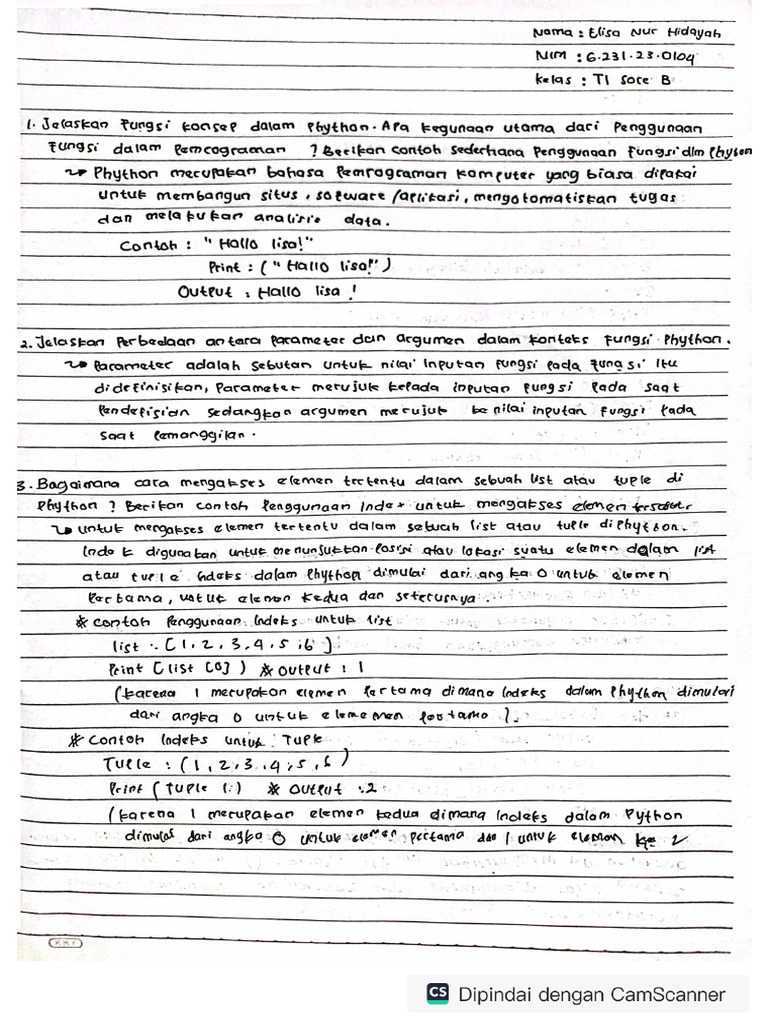 Nama : Elisa Nur Hidayah
NIM : 6.231.23.0104
Kelas : TI Sore B
1. Jelaskan Fungsi konsep dalam Phython. Apa kegunaan utama dari Penggunaan
Fungsi dalam Pemrograman ? Berikan contoh sederhana Penggunaan Fungsi dlm Phyton
Phython merupakan bahasa Pemrograman komputer yang biasa dipakai
untuk membangun situs, software /aplikasi, mengotomatiskan tugas
dan melakukan analisis data.
Contoh : "Hallo lisa!"
Print : ("Hallo lisa!")
Output : Hallo lisa !
2. Jelaskan Perbedaan antara Parameter dan argumen dalam konteks Fungsi Phython.
Parameter adalah sebutan untuk nilai inputan fungsi pada fungsi itu
di definisikan, Parameter merujuk kepada inputan fungsi pada saat
Pendefisian sedangkan argumen merujuk ke nilai inputan fungsi pada
saat pemanggilan.
3. Bagaimana cara mengakses elemen tertentu dalam sebuah list atau tuple di
Phython ? Berikan contoh Penggunaan Index untuk mengakses elemen tersebut
untuk mengakses elemen tertentu dalam sebuah list atau tuple di Phython.
Indek digunakan untuk menunjukkan Posisi atau lokasi suatu elemen dalam list
atau tuple indeks dalam Phython dimulai dari angka 0 untuk elemen
Pertama, untuk elemen kedua dan seterusnya.
* Contoh Penggunaan Indeks untuk list
list : [1, 2, 3, 4, 5, 6]
Print [list [0]) * Output : 1
(karena 1 merupakan elemen Pertama dimana Indeks dalam Phython dimulai
dari angka 0 untuk elememen Pertama ).
* Contoh Indeks untuk Tuple
Tuple : (1, 2, 3, 4, 5, 6)
Print (Tuple 1:) * Output : 2
(karena 1 merupakan elemen kedua dimana Indeks dalam Python
dimulai dari angka 0 untuk elemen pertama dan 1 untuk elemen ke 2
KKY
CS Dipindai dengan CamScanner